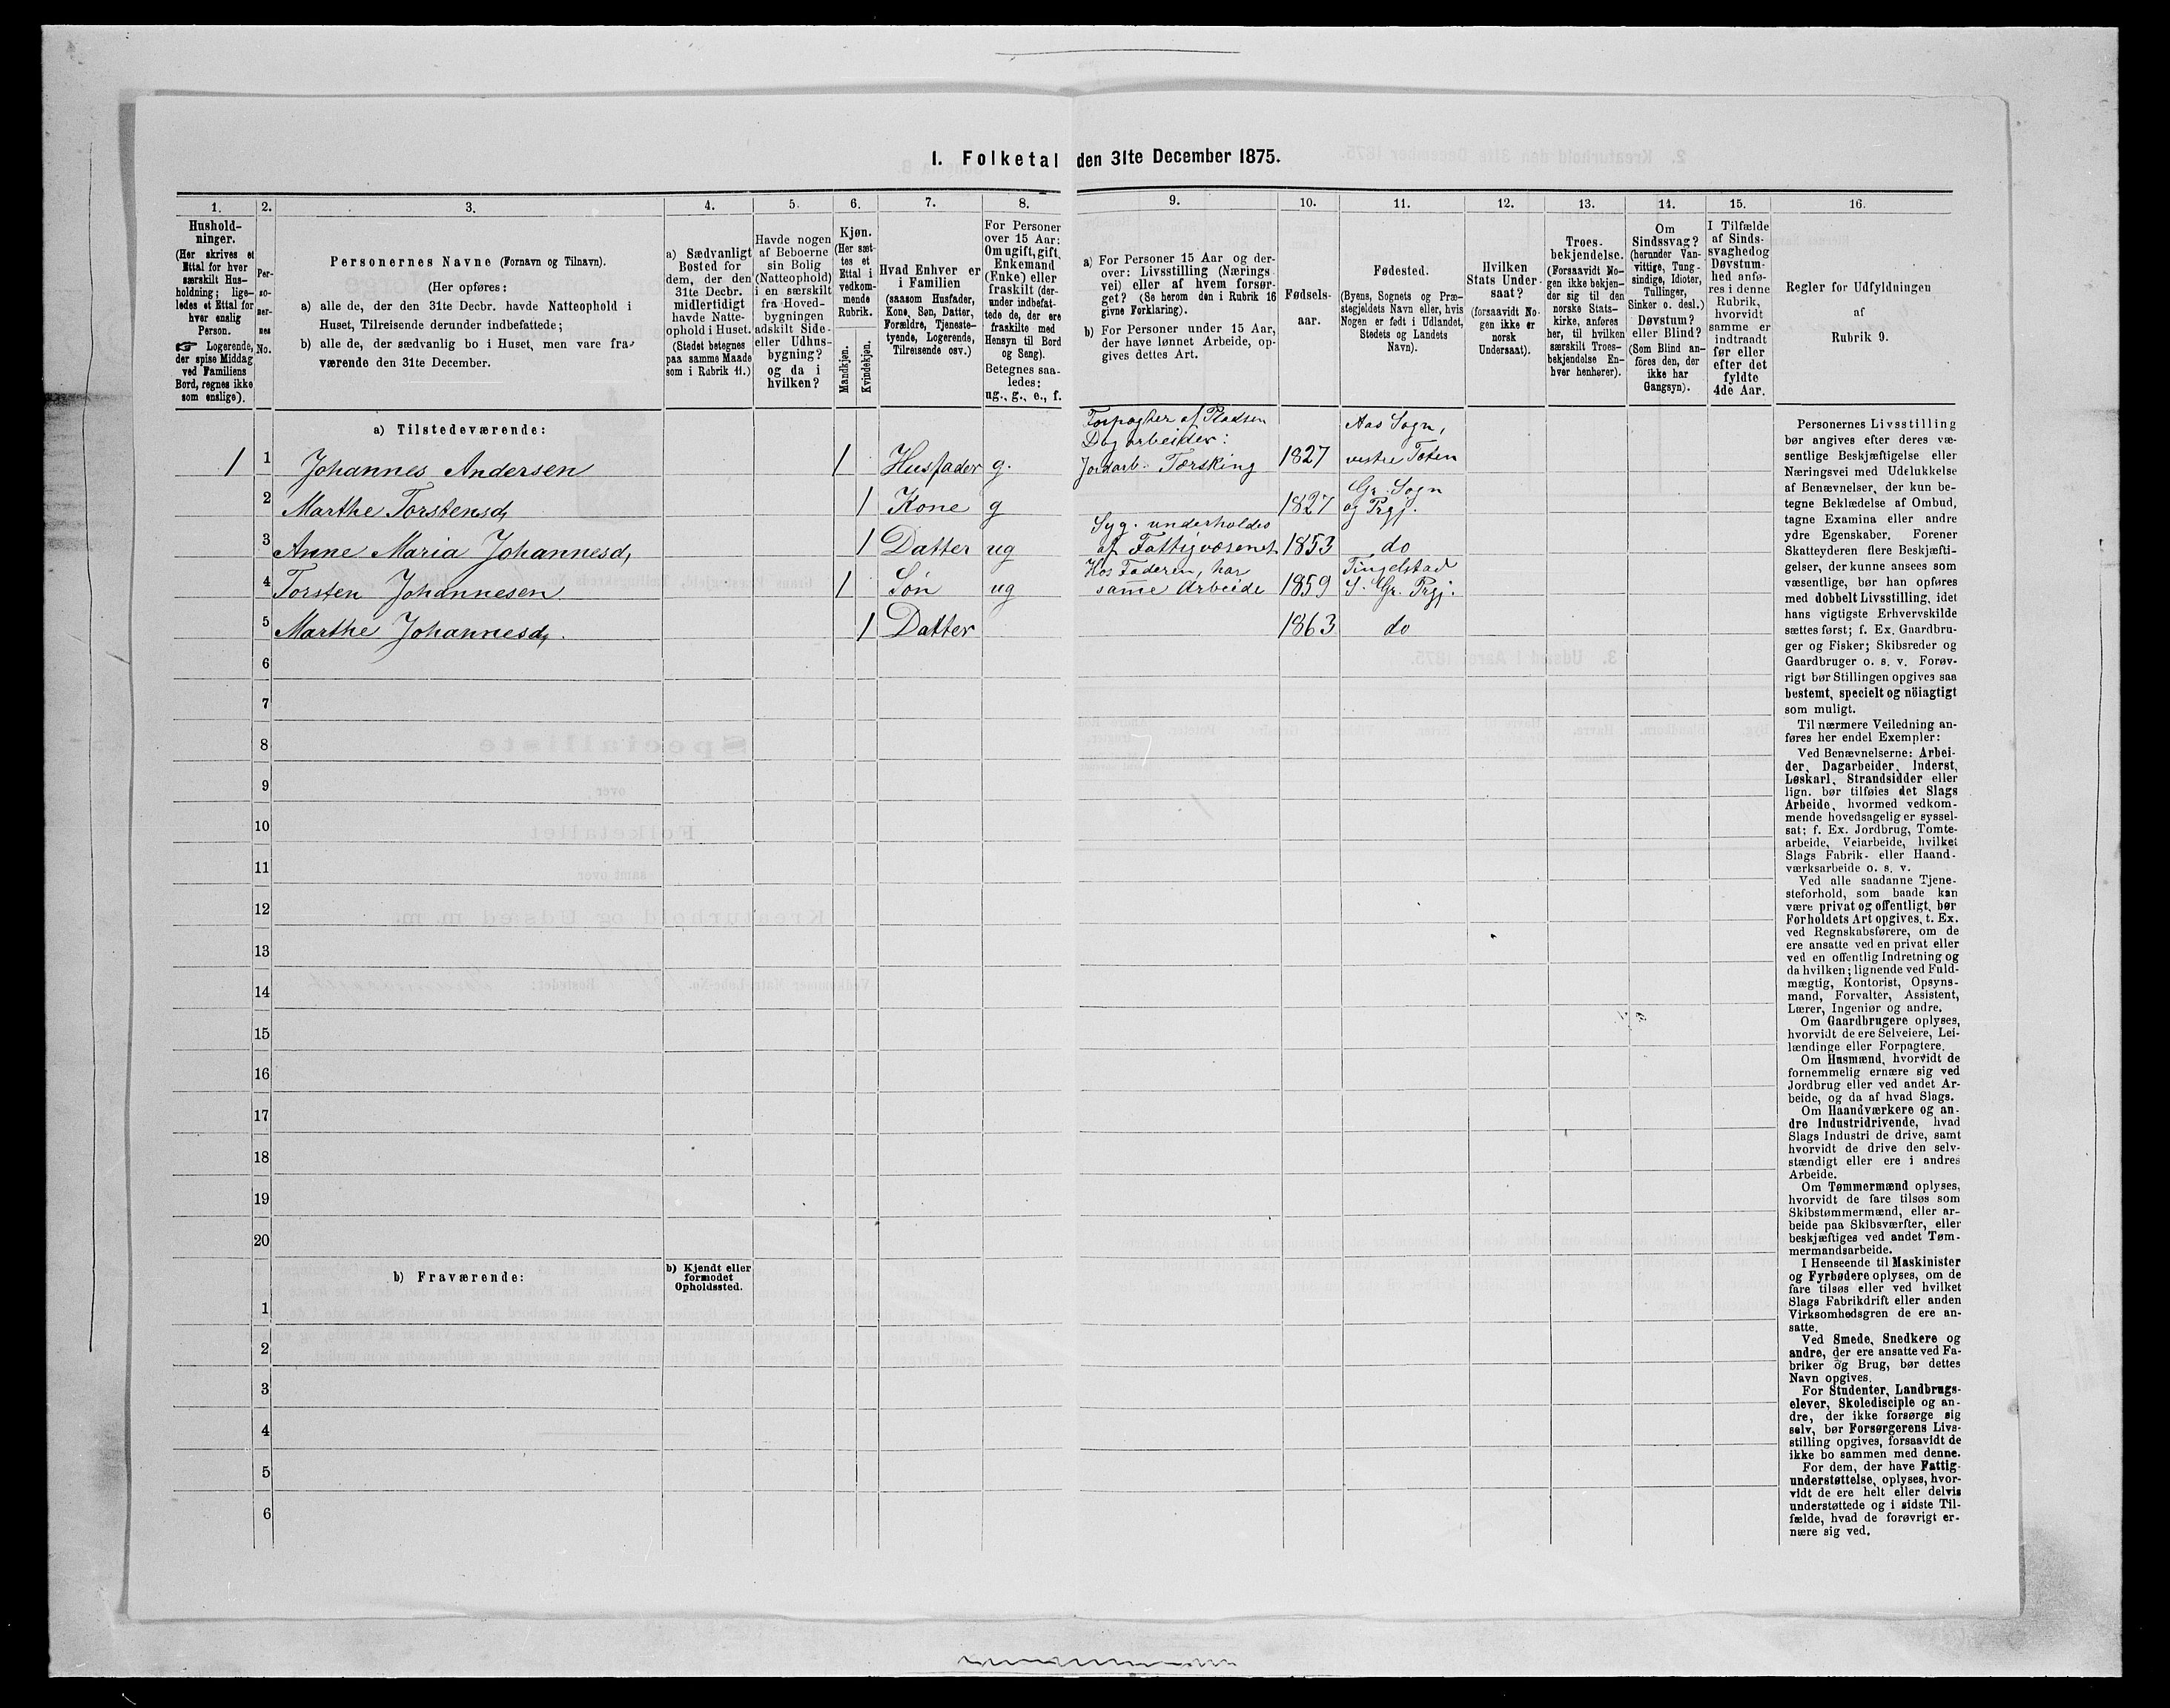 1. Folketal den 31te December 1875.
1.
Hushold-
ninger.
(Her skrives et
Ettal for hver
særskilt Hus-
holdning; lige-
ledes et Ettal for
hver enslig
Person.
☞ Logerende,
der spise Middag
ved Familiens
Bord, regnes ikke
som enslige).
2.
Per-
so-
ner-
nes
No.
3.
Personernes Navne (Fornavn og Tilnavn).
(Her opføres:
a) alle de, der den 31te Decbr. havde Natteophold i
Huset, Tilreisende derunder indbefattede;
b) alle de, der sædvanlig bo i Huset, men vare fra-
værende den 31te December.
4.
a) Sædvanligt
Bosted for
dem, der den
31te Decbr.
midlertidigt
havde Natte-
ophold i Huset.
(Stedet betegnes
paa samme Maade
som i Rubrik 11.)
5.
Havde nogen
af Beboerne
sin Bolig
(Natteophold)
i en særskilt
fra Hoved-
bygningen
adskilt Side-
eller Udhus-
bygning?
og da i
hvilken?
6.
Kjøn.
(Her sæt-
tes et
Ettal i
vedkom-
mende
Rubrik.
Mandkjøn.
Kvindekjøn.
7.
Hvad Enhver er
i Familien
(saasom Husfader,
Kone, Søn, Datter,
Forældre, Tjeneste-
tyende, Logerende,
Tilreisende osv.)
8.
For Personer
over 15 Aar:
Om ugift, gift,
Enkemand
(Enke) eller
fraskilt (der-
under indbefat-
tede de, der ere
fraskilte med
Hensyn til Bord
og Seng).
Betegnes saa-
ledes:
ug., g., e., f.
9.
a) For Personer 15 Aar og der-
over: Livsstilling (Nærings
vei) eller af hvem forsør-
get? (Se herom den i Rubrik 16
givne Forklaring).
b) For Personer under 15 Aar,
der have lønnet Arbeide, op-
gives dettes Art.
10.
Fødsels-
aar.
11.
Fødested.
(Byens, Sognets og Præ-
stegjeldets Navn eller, hvis
Nogen er født i Udlandet,
Stedets og Landets
Navn).
12.
Hvilken
Stats Under-
saat?
(forsaavidt No-
gen ikke er
norsk
Undersaat).
13.
Troes-
bekjendelse.
(Forsaavidt No-
gen ikke bekjen-
der sig til den
norske Stats-
kirke, anføres
her, til hvilken
særskilt Troes-
bekjendelse En-
hver henhører).
14.
Om
Sindssvag?
(herunder Van-
vittige, Tung-
sindige, Idioter,
Tullinger,
Sinker o. desl.)
Døvstum?
eller Blind?
(Som Blind an-
føres den, der
ikke har
Gangsyn).
15.
I Tilfælde
af Sinds-
svaghed og
Døvstum-
hed anfø-
res i denne
Rubrik,
hvorvidt
samme er
indtraadt
før eller
efter det
fyldte
4de Aar.
16.
Regler for Udfyldningen
af
Rubrik 9.
a) Tilstedeværende:
Forpagter af Pladsen
Dagarbeider:
Aas Sogn,
1 1 Johannes Andersen 1 Husfader g. Jordarb. Tærsking 1827 vestre Toten
Gr. Sogn
2 Marthe Torstensd, 1 Kone g 1827 og Prgj.
Syg. underholdes
3 Anne Maria Johannesd, 1 Datter ug af Fattigvæsenet 1853 do
Hos Faderen, har Tingelstad
4 Torsten Johannesen 1 Søn ug samme Arbeide 1859 S. Gr. Prgj:
5 Marthe Johannesd, 1 Datter 1863 do
6
7
8
9
10
11
12
13
14
15
16
17
18
19
20
b) Fraværende:
b) Kjendt eller
formodet
Opholdssted.
1
2
3
4
5
6
Personernes Livsstilling
bør angives efter deres væ-
sentlige Beskjæftigelse eller
Næringsvei med Udelukkelse
af Benævnelser, der kun be-
tegne Beklædelse af Ombud,
tagne Examina eller andre
ydre Egenskaber. Forener
Skatteyderen flere Beskjæfti-
gelser, der kunne ansees som
væsentlige, bør han opføres
med dobbelt Livsstilling, idet
hans vigtigste Erhvervskilde
sættes først; f. Ex. Gaardbru-
ger og Fisker; Skibsreder og
Gaardbruger o. s. v. Forøv-
rigt bør Stillingen opgives saa
bestemt, specielt og nöiagtigt
som muligt.
Til nærmere Veiledning an-
føres her endel Exempler:
Ved Benævnelserne: Arbei-
der, Dagarbeider, Inderst,
Løskarl, Strandsidder eller
lign. bør tilføies det Slags
Arbeide, hvormed vedkom-
mende hovedsagelig er syssel-
sat; f. Ex. Jordbrug, Tomte-
arbeide, Veiarbeide, hvilket
Slags Fabrik- eller Haand-
værksarbeide o. s. v.
Ved alle saadanne Tjene-
steforhold, som baade kan
være privat og offentligt, bør
Forholdets Art opgives, t. Ex.
ved Regnskabsførere, om de
ere ansatte ved en privat eller
ved en offentlig Indretning og
da hvilken; lignende ved Fuld-
mægtig, Kontorist, Opsyns-
mand, Forvalter, Assistent,
Lærer, Ingeniør og andre.
Om Gaardbrugere oplyses,
hvorvidt de ere Selveiere, Lei-
lændinge eller Forpagtere.
Om Husmænd, hvorvidt de
fornemmelig ernære sig ved
Jordbrug eller ved andet Ar-
beide, og da af hvad Slags.
Om Haandværkere og an-
dre Industridrivende, hvad
Slags Industri de drive, samt
hvorvidt de drive den selv-
stændigt eller ere i andres
Arbeide.
Om Tømmermænd oplyses,
hvorvidt de fare tilsøs som
Skibstømmermænd, eller ar-
beide paa Skibsværfter, eller
beskjæftiges ved andet Tøm-
mermandsarbeide.
I Henseende til Maskinister
og Fyrbødere oplyses, om de
fare tilsøs eller ved hvilket
Slags Fabrikdrift eller anden
Virksomhedsgren de ere an-
satte.
Ved Smede, Snedkere og
andre, der ere ansatte ved Fa-
briker og Brug, bør dettes
Navn opgives.
For Studenter, Landbrugs-
elever, Skoledisciple og an-
dre, der ikke forsørge sig
selv, bør Forsørgerens Livs-
stilling opgives, forsaavidt de
ikke bo sammen med denne.
For dem, der have Fattig-
understøttelse, oplyses, hvor-
vidt de ere helt eller delvis
understøttede og i sidste Til-
fælde, hvad de forøvrigt er-
nære sig ved.